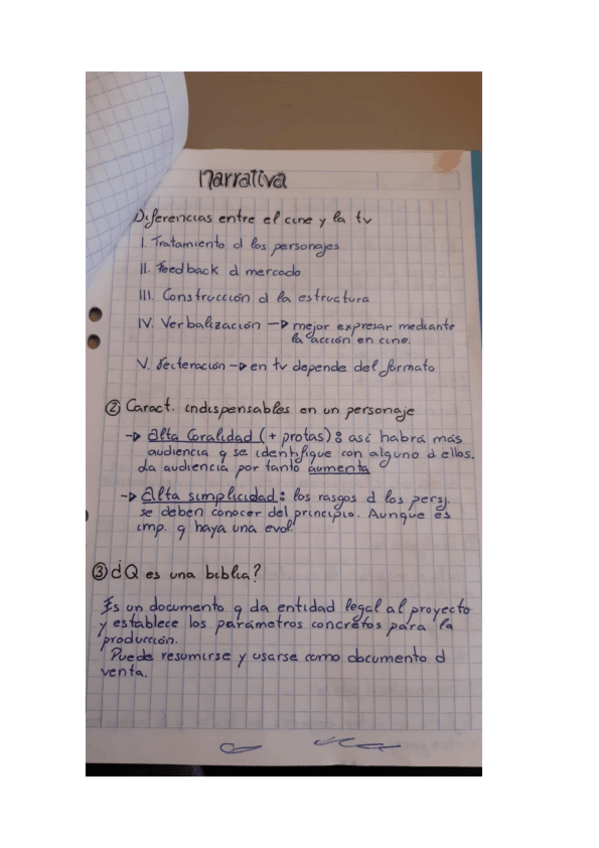 Narrativa
Diferencias entre el cine y la tv
I. Tratamiento d los personajes
II. Feedback d mercado
III. Construcción d la estructura
IV. Verbalización → mejor expresar mediante
la acción en cine.
V. reiteración → en tv depende del formato
② Caract. indispensables en un personaje
→ Alta Coralidad (+ protas): así habrá más
audiencia q se identifique con alguno d ellos.
La audiencia por tanto aumenta
→ Alta simplicidad: los rasgos d los persj.
se deben conocer del principio. Aunque es
imp. q haya una evol.
③ ¿Q es una biblia?
Es un documento q da entidad legal al proyecto
y establece los parámetros concretos para la
producción.
Puede resumirse y usarse como documento d
venta.